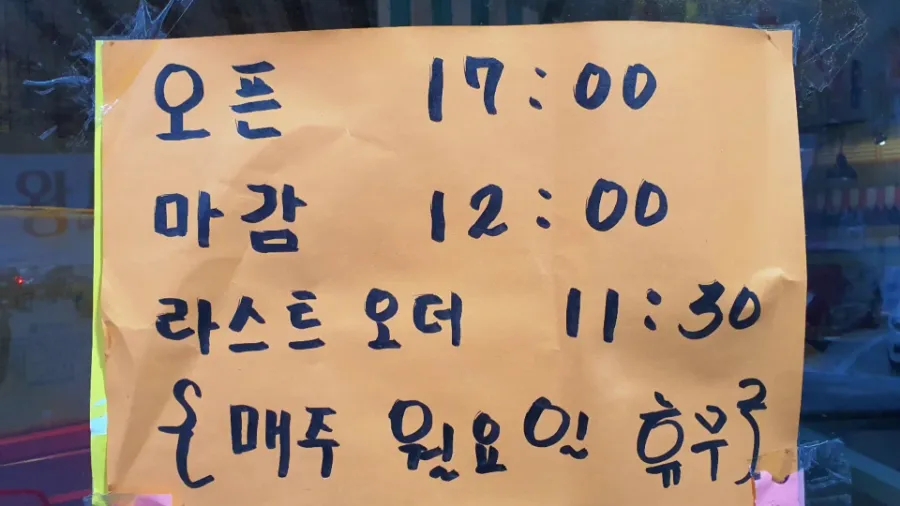 오픈 17:00
마감 12:00
라스트 오더 11:30
{매주 월요일 휴무}
왕